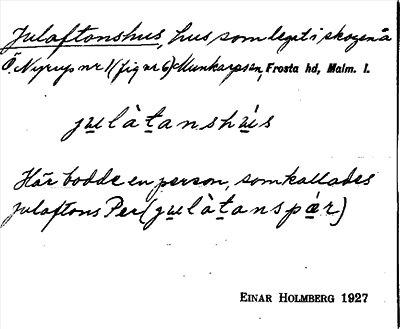 Julaftonshus, hus, som legat i skogen å
Ö. Nyrup nr 1 (fig nr 6) Munkarpsen, Frosta hd, Malm. l.
julàtanshùs
Här bodde en person, som kallades
Julaftons Per (julàtanspær)
EINAR HOLMBERG 1927